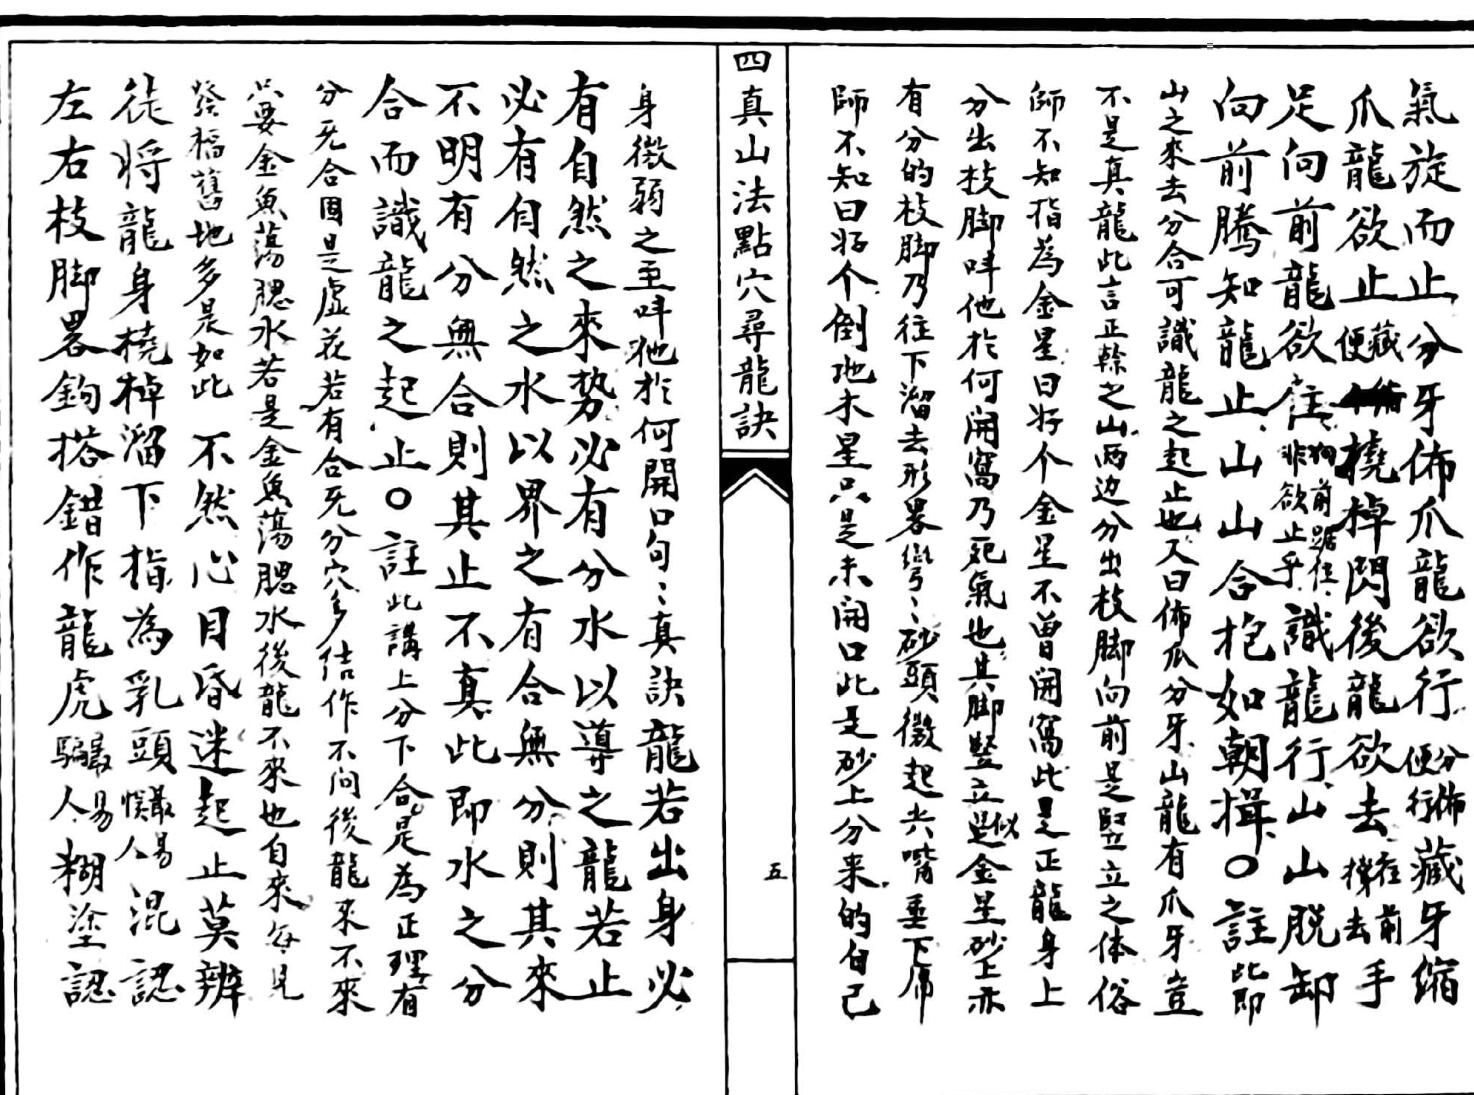 氣旋而止分牙佈爪龍欲行分佈便行藏牙縮
爪龍欲止藏縮便橈棹閃後龍欲去橈在前撑去手
足向前龍欲住狗前踞住非欲止乎識龍行山山脫卸
向前騰知龍止山山合抱如朝揖○註此即
山之來去分合可識龍之起止也又曰佈爪分牙山龍有爪牙豈
不是真龍此言正幹之山兩边分出枝脚向前是竪立之体俗
師不知指為金星曰好个金星不曾開窩此是正龍身上
分出枝脚叫他於何開窩乃死氣也其脚竪立似是金星砂上亦
有分的枝脚乃往下溜去形畧彎彎砂頭微起尖嘴垂下
師不知曰好个倒地木星只是未開口此是砂上分来的自己
四真山法點穴尋龍訣
五
身微弱之至叫他於何開口句〻真訣龍若出身必
有自然之來势必有分水以導之龍若止
必有自然之水以界之有合無分則其來
不明有分無合則其止不真此即水之分
合而識龍之起止○註此講上分下合是為正理有
分无合固是虛花若有合无分穴多結作不问後龍來不來
只要金魚蕩腮水若是金魚蕩腮水後龍不來也自來每見
發福舊地多是如此不然心目昏迷起止莫辨
徒将龍身橈棹溜下指為乳頭最易悞人混認
左右枝脚畧鉤搭錯作龍虎最易騙人糊塗認